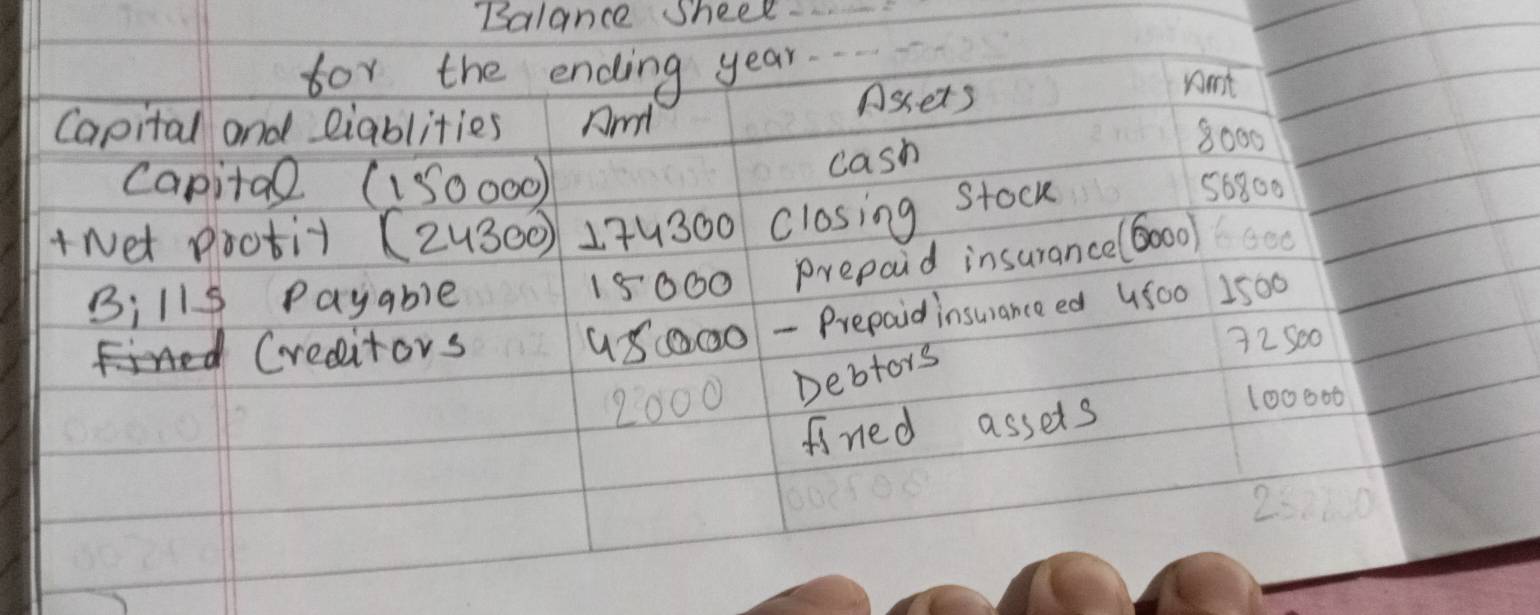 Balance Sheet
for the ending year
Capital and Liablities Amt Assets Amt
Capital (150000) cash 8000
+ Net profit (24300) 174300 Closing Stock 56800
Bills Payable 15000 prepaid insurance (6000) 6000
Fined Creditors 45000 - Prepaid insurance ed 4500 1500
2000 Debtors 72500
fined assets 100000